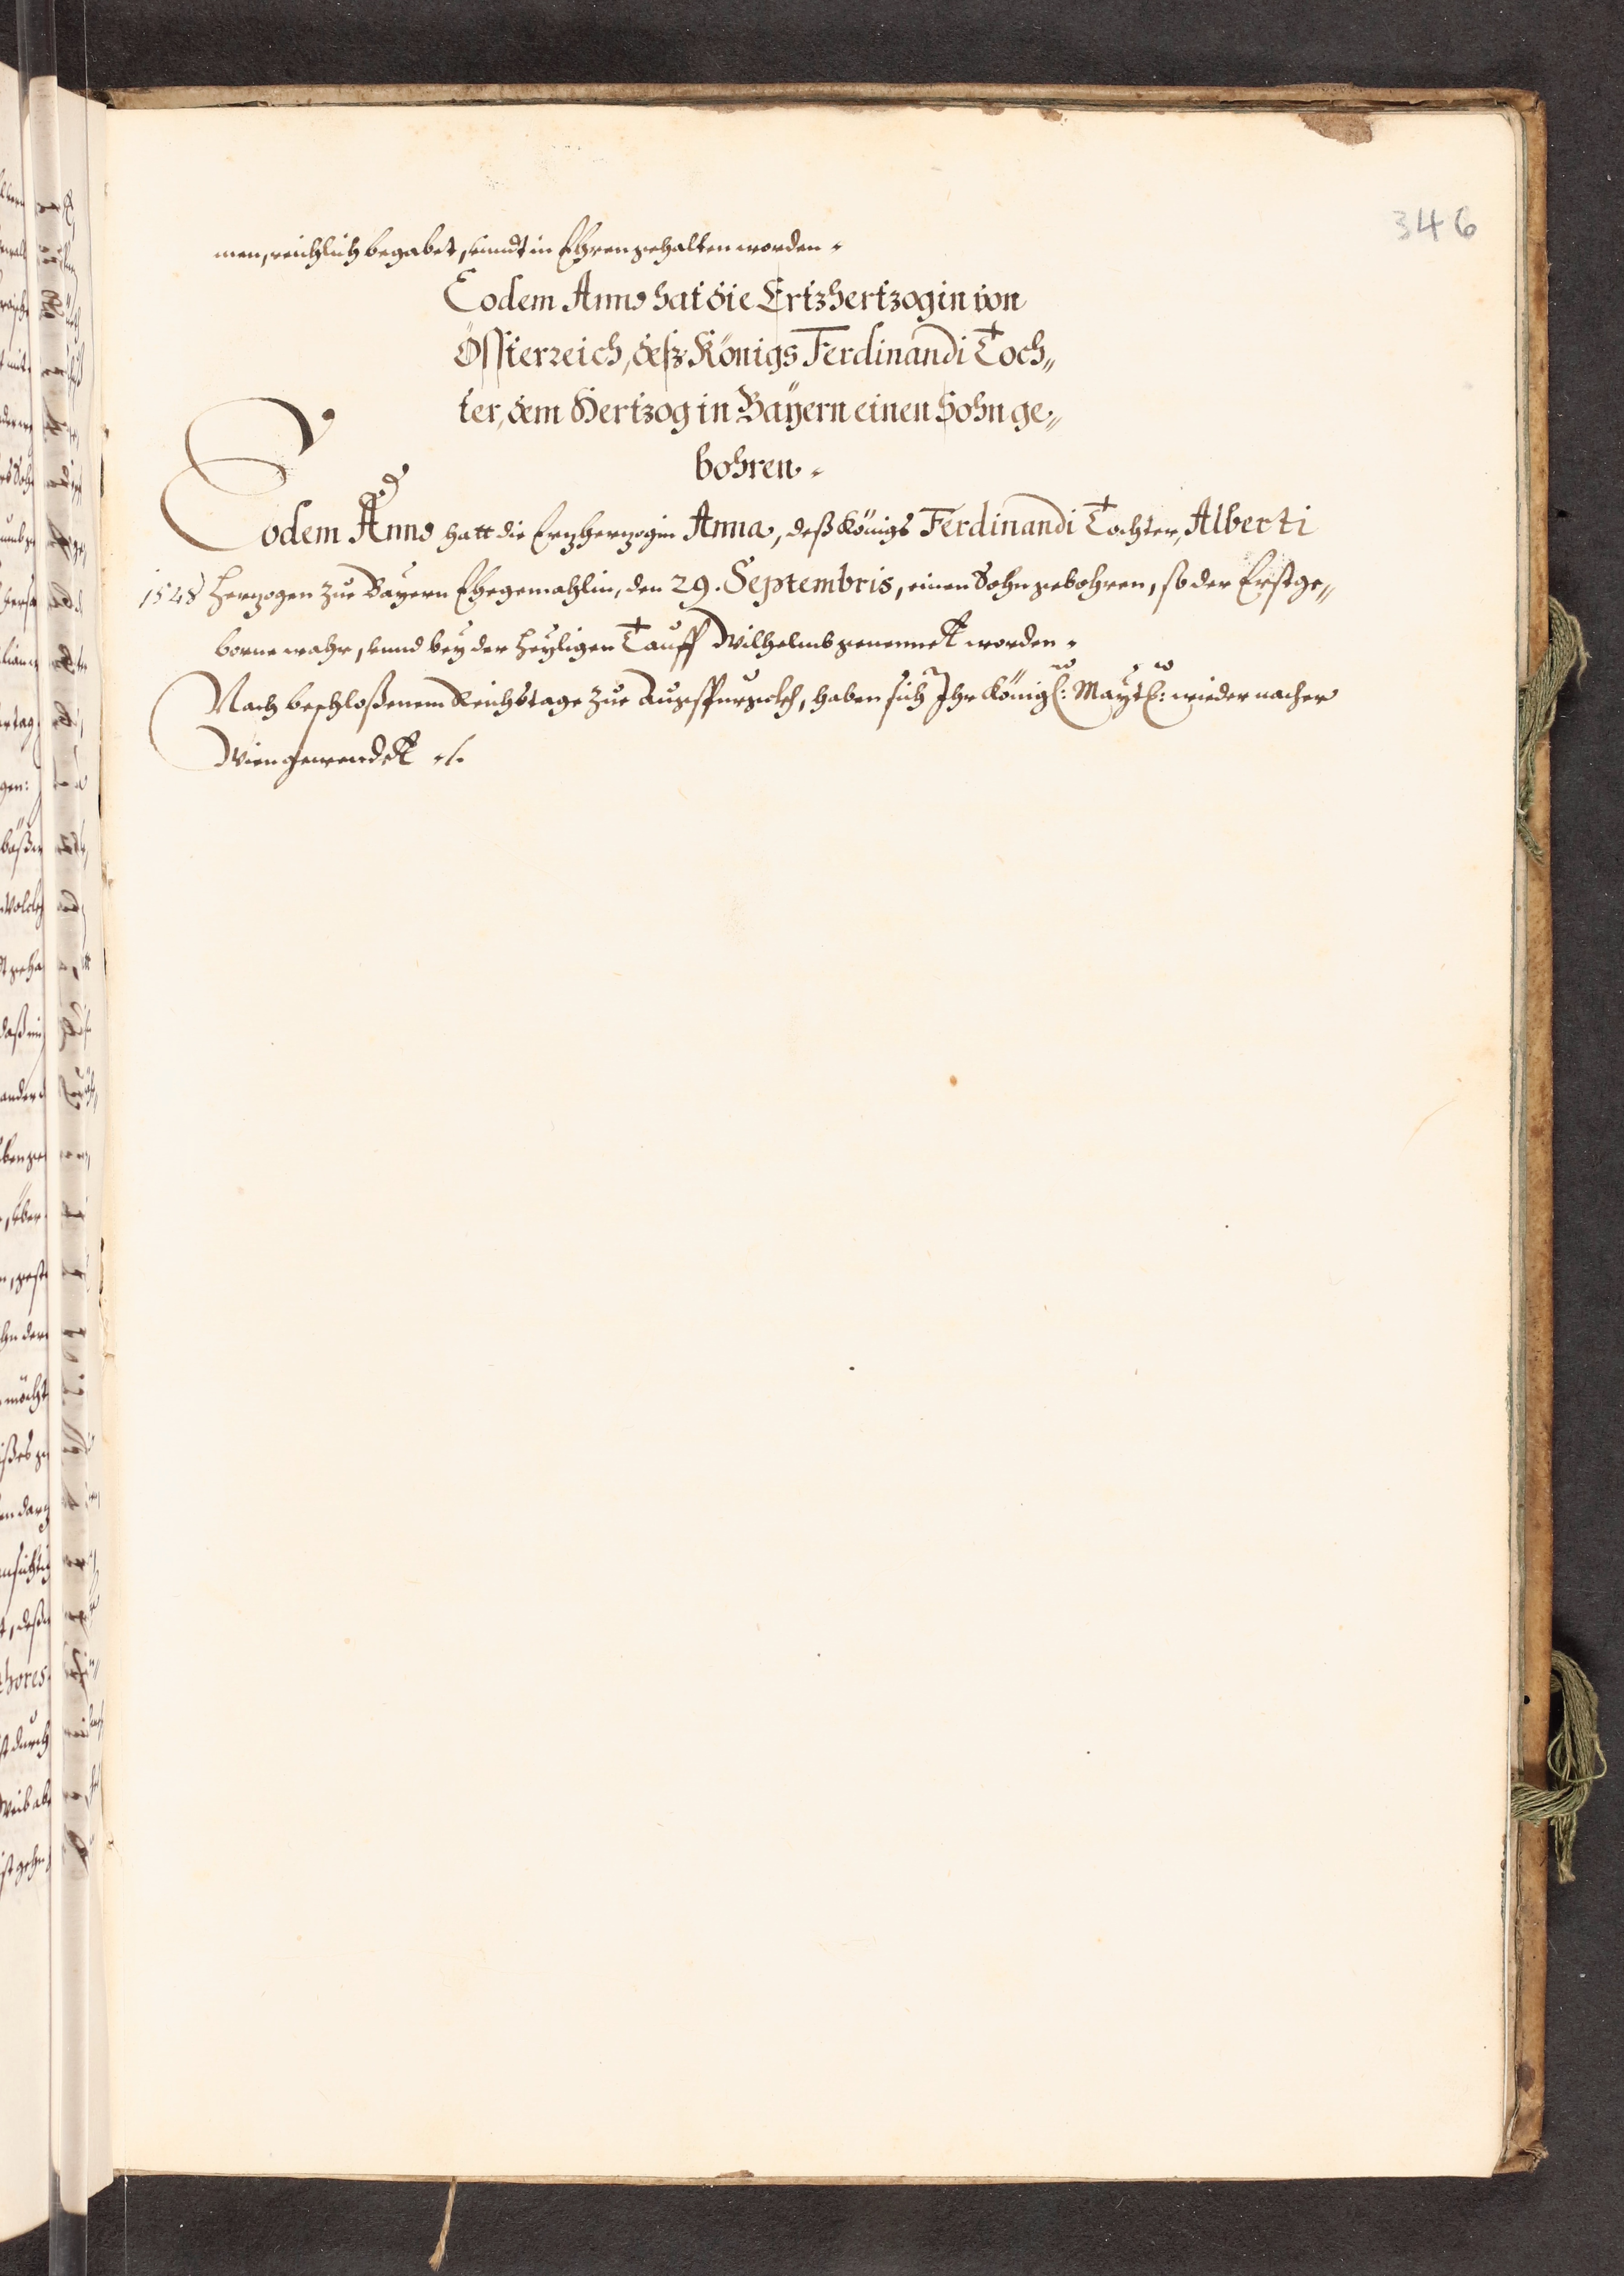 346
men, reichlich begabet, vnndt in Ehren gehalten worden.
Eodem Anno hat die Ertzhertzogin von
Össterreich, deß Königs Ferdinandi Toch„
ter, dem Hertzog in Baÿern einen Sohn ge„
bohren.
Eodem Anno hatt die Erzherzogin Anna, deß Königs Ferdinandi Tochter, Alberti
1548 Herzogen zue Bayern Ehegemahlin, den 29. Septembris, einen Sohn gebohren, so der Erstge„
borne wahr, vnnd bey der Heyligen Tauff Wilhelmb genennet worden.
Nach beschloßenem Reichstage zue Augspurg, haben sich Ihr Königl: Maytl: wieder nacher
Wien gewendet